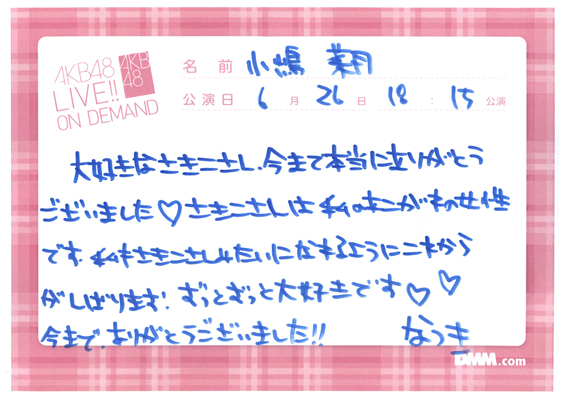 AKB48
LIVE!!
ON DEMAND
AKB
48
名 前 小嶋 菜月
公演日 6 月 26 日 18 : 15 公演
大好きなさきこさん、今まで本当にありがとう
ございました♡さきこさんは私のあこがれの女性
です。私もさきこさんみたいになれるようにこれから
がんばります! ずっとずっと大好きです♡♡
今まで、ありがとうございました!!
なつき
DMM.com